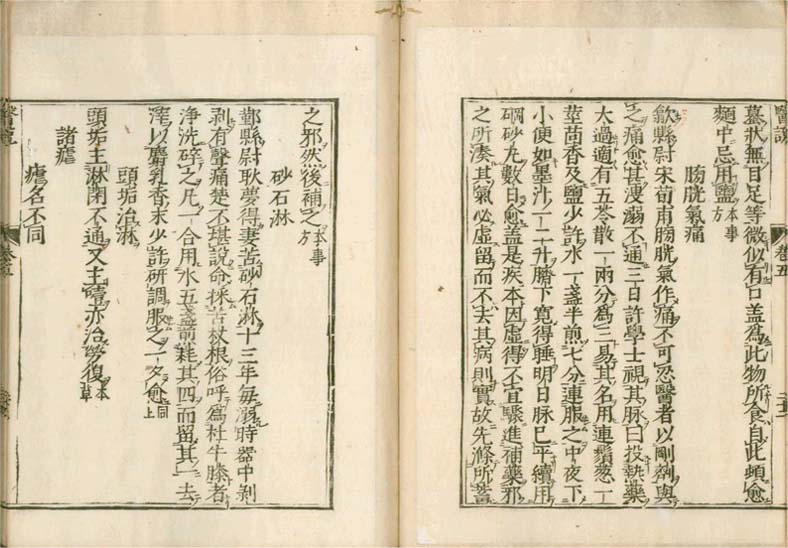 醫說
蟇狀無目足等微似有口蓋爲此物所食自此頓愈
麵中忌用鹽本事方
膀胱氣痛
歙縣尉宋荀甫膀胱氣作痛不可忍醫者以剛劑與
之痛愈甚溲溺不通三日許學士視其脉曰投熱藥
太過適有五苓散一兩分爲三易其名用連鬚葱一
莖茴香及鹽少許水一盞半煎七分連服之中夜下
小便如墨汁一二升臍下寬得睡明日脉已平續用
硇砂丸數日愈蓋是疾本因虛得不宜驟進補藥邪
之所湊其氣必虛留而不去其病則實故先滌所蓄
卷五
之邪然後補之本事方
砂石淋
鄞縣尉耿夢得妻苦砂石淋十三年每溺時器中剝
剝有聲痛楚不堪說命採苦杖根俗呼爲杜牛膝者
净洗碎之凡一合用水五盞煎耗其四而留其一去
滓以麝乳香末少許研調服之一夕愈同上
頭垢治淋
頭垢主淋閉不通又主噎亦治勞復本草
諸瘧
瘧名不同
醫說
卷五